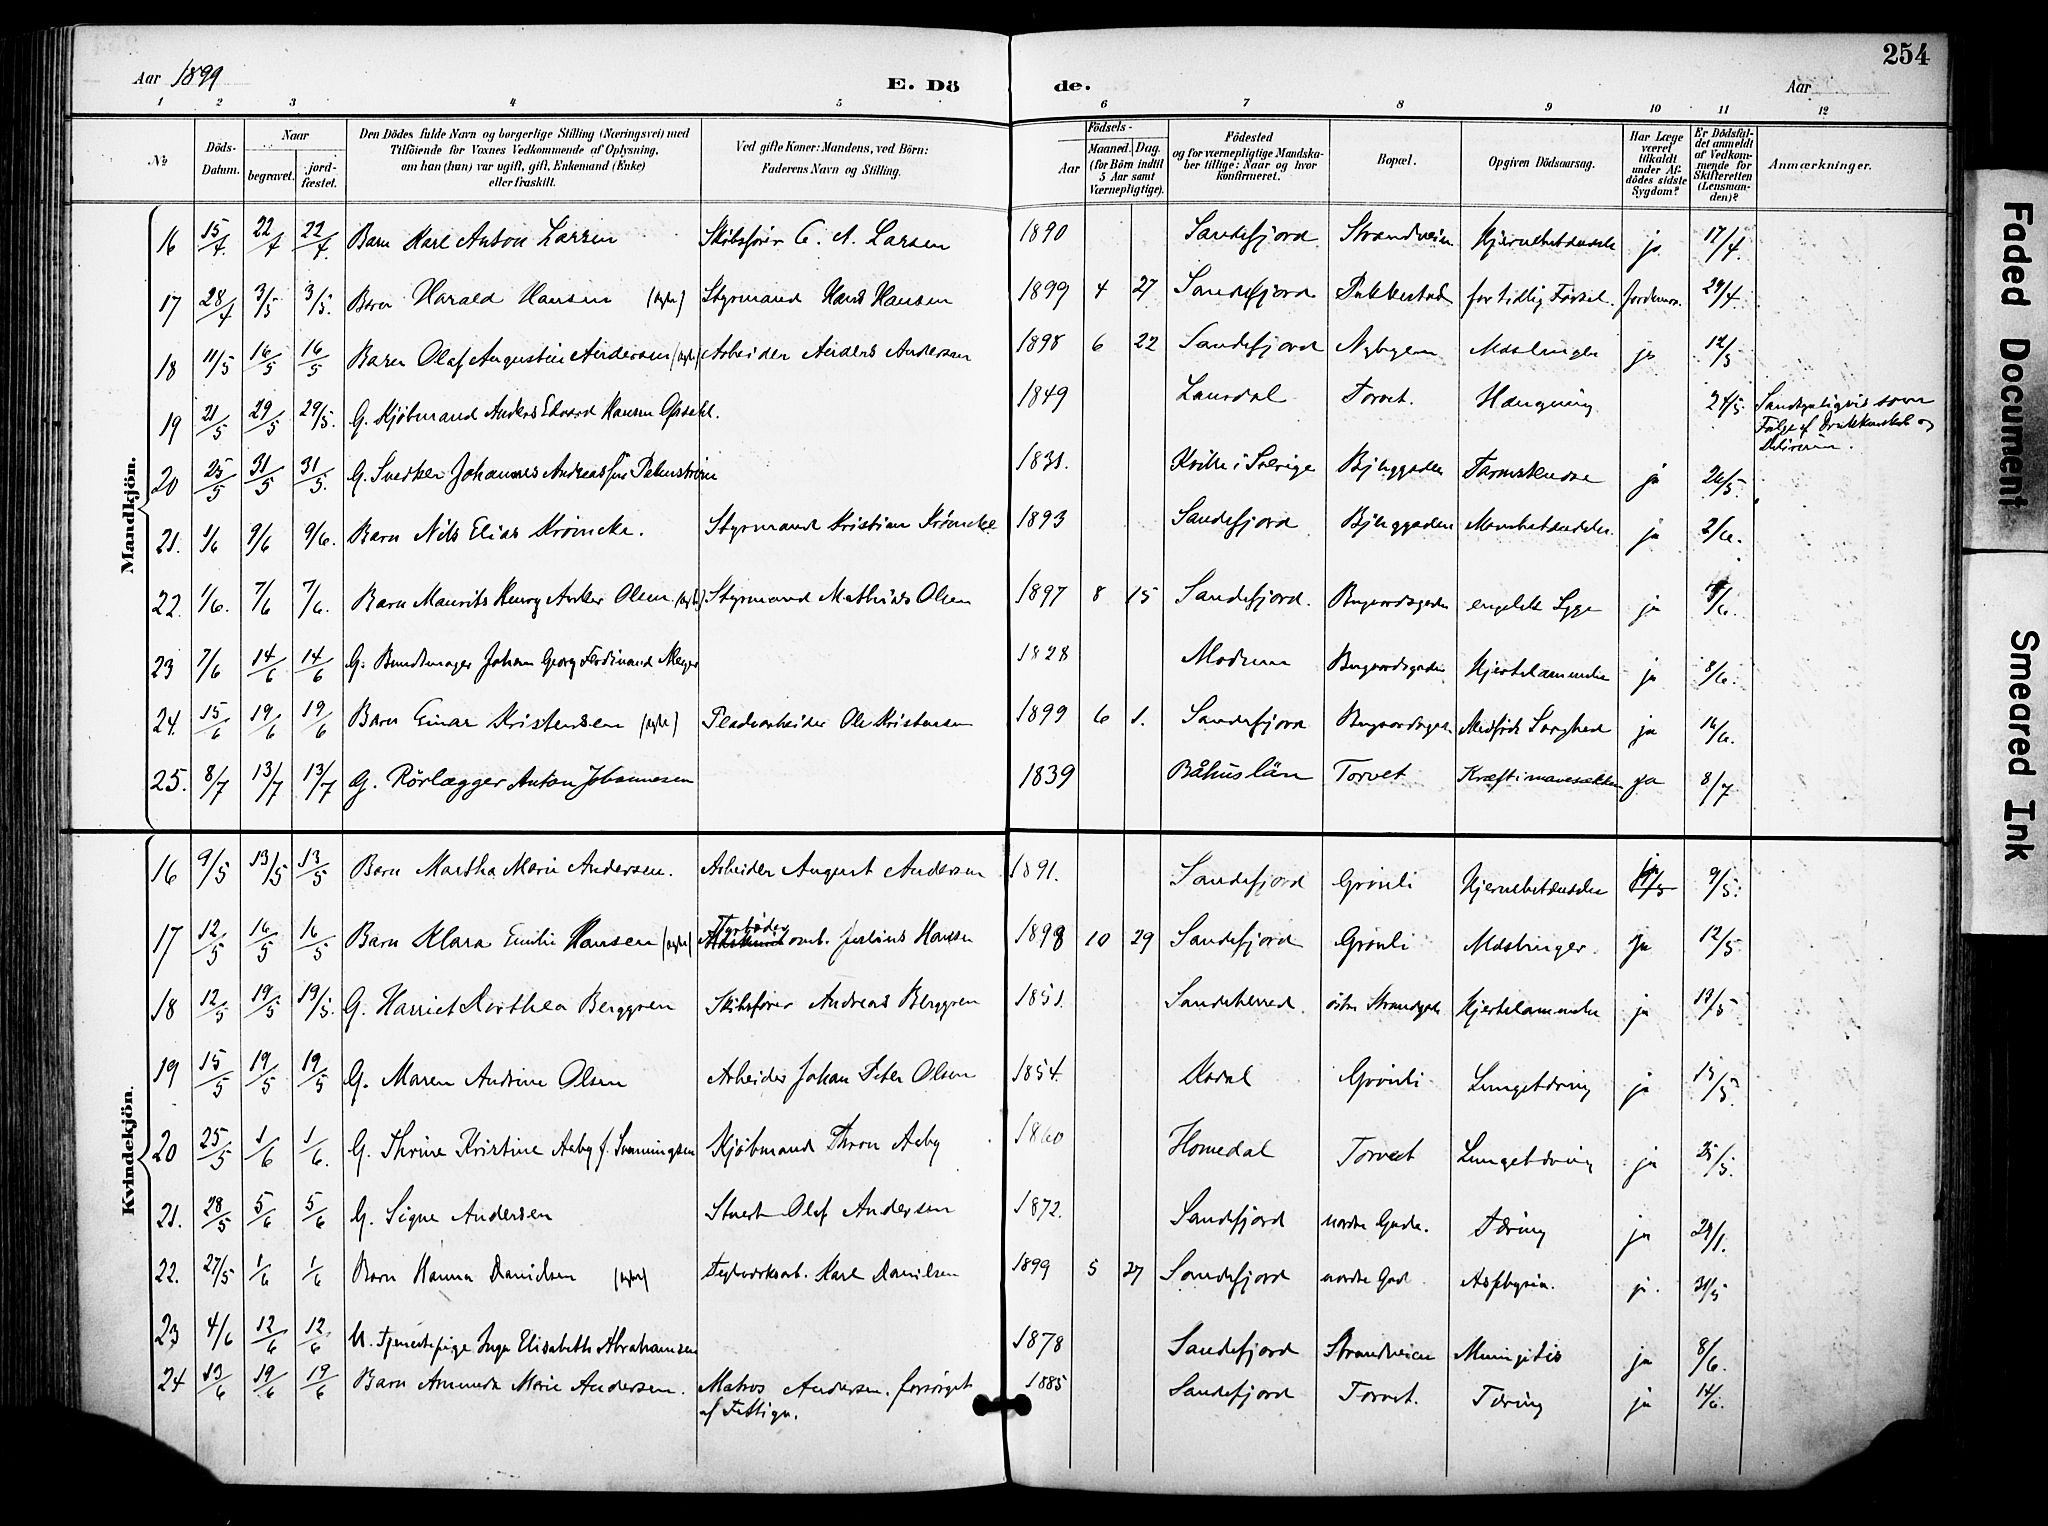 254
Aar 1899
E. Dö
de.
Aar
1 2 3 4 5 6 7 8 9 10 11 12
No
Döds-Datum.
Naar
begravet.
jordfæstet.
Den Dödes fulde Navn og borgerlige Stilling (Næringsvei) med
Tilföiende for Voxnes Vedkommende af Oplysning,
om han (hun) var ugift, gift, Enkemand (Enke)
eller fraskilt.
Ved gifte Koner: Mandens, ved Börn:
Faderens Navn og Stilling.
Födsels-
Aar
Maaned. Dag.
(for Börn indtil
5 Aar samt
Værnepligtige).
Födested
og for værnepligtige Mandska-
ber tillige: Naar og hvor
konfirmeret.
Bopæl.
Opgiven Dödsaarsag.
Har Læge
været
tilkaldt
under Af-
dödes sidste
Sygdom?
Er Dödsfal-
det anmeldt
af Vedkom-
mende for
Skifteretten
(Lensman-
den)?
Anmærkninger.
Mandkjön.
16 15/4 22/4 22/4. Barn Karl Anton Larsen Skibsfører C. A. Larsen 1890 Sandefjord Strandveien Hjernebetændelse ja 17/4.
17 28/4 3/5 3/5. Barn Harald Hansen Styrmand Hans Hansen 1899 4 27 Sandefjord for tidlig Førsel 29/4.
18 11/5 16/5 16/5 Barn Olaf Augustin Andersen Arbeider Anders Andersen 1898 6 22 Sandefjord Nybyen Mæslinger ja 12/5
19 21/5 29/5 29/5. G. Kjøbmand Anders Edvard Hansen Opdahl. 1849 Laurdal Torvet. Hængning 24/5. Sandsynligvis som
Følge af Drukkenskab og
Delirium.
20 25/5 31/5 31/5. G. Snedker Johannes Andreas 1831. i Sverige Bjerggaden ja 26/5.
21. 1/6 9/6 9/6. Barn Nils Elias Krøincke. Styrmand Kristian Krøincke 1893 Sandefjord. Bjerggaden ja 2/6.
22. 1/6. 7/6 7/6. Barn Maurits Henry Anker Olsen Styrmand Mathias Olsen 1897 8 15 Sandefjord. engelsk Syge ja
23 7/6 14/6 14/6 G. Bundtmager Johan Georg Ferdinand Meyer 1828 Modum Hjertelammelse ja 8/6.
24. 15/6 19/6 19/6 Barn Einar Kristensen Pladsarbeider Ole Kristensen 1899 6 1. Sandefjord Medfødt Svaghed ja 16/6.
25. 8/7 13/7 13/7 G. Rørlægger Anton Johannesen 1839 Båhuslän Torvet Kræft i mavesækken ja 8/7
Kvindekjön.
16 9/5 13/5 13/5 Barn Martha Marie Andersen. Arbeider August Andersen 1891. Sandefjord Grønli Hjernebetændelse 9/5.
17 12/5 16/5 16/5 Barn Klara Emilie Hansen Fyrbøder Julius Hansen 1898 10 29 Sandefjord Grønli Mæslinger. ja 12/5.
18 12/5 19/5 19/5. G. Harriet Dorthea Berggren Skibsfører Andreas Berggren 1851. Sandeherred østre Strandgade Hjertelammelse ja 13/5
19 15/5 19/5 19/5 G. Maren Andrine Olsen Arbeider Johan Peter Olsen 1854. Grønli Lungetæring ja 15/5.
20 25/5 1/6 1/6. G. Thrine Kristine Aaby f. Svenningsen Kjøbmand Thron Aaby 1860 Homedal Torvet Lungetæring ja 25/5.
21. 28/5 5/6 5/6 G. Signe Andersen Stuert Olaf Andersen 1872. Sandefjord nordre Gade. Tæring ja
22. 27/5 1/6 1/6 Barn Hanna Danielsen Teglværksarb. Karl Danielsen 1899 5 27 Sandefjord nordre Gad. Asphyxia. ja. 31/5
23 4/6 12/6 12/6 U. Tjenestepige Inga Elisabeth Abrahamsen 1878 Sandefjord Strandveien Meningitis ja 8/6.
24 13/6 19/6 19/6 Barn Annette Marie Andersen. Matros Andersen. forsørget
af Fattigv. 1885 Sandefjord Torvet. Tæring ja 14/6.
Faded Document
Smeared Ink